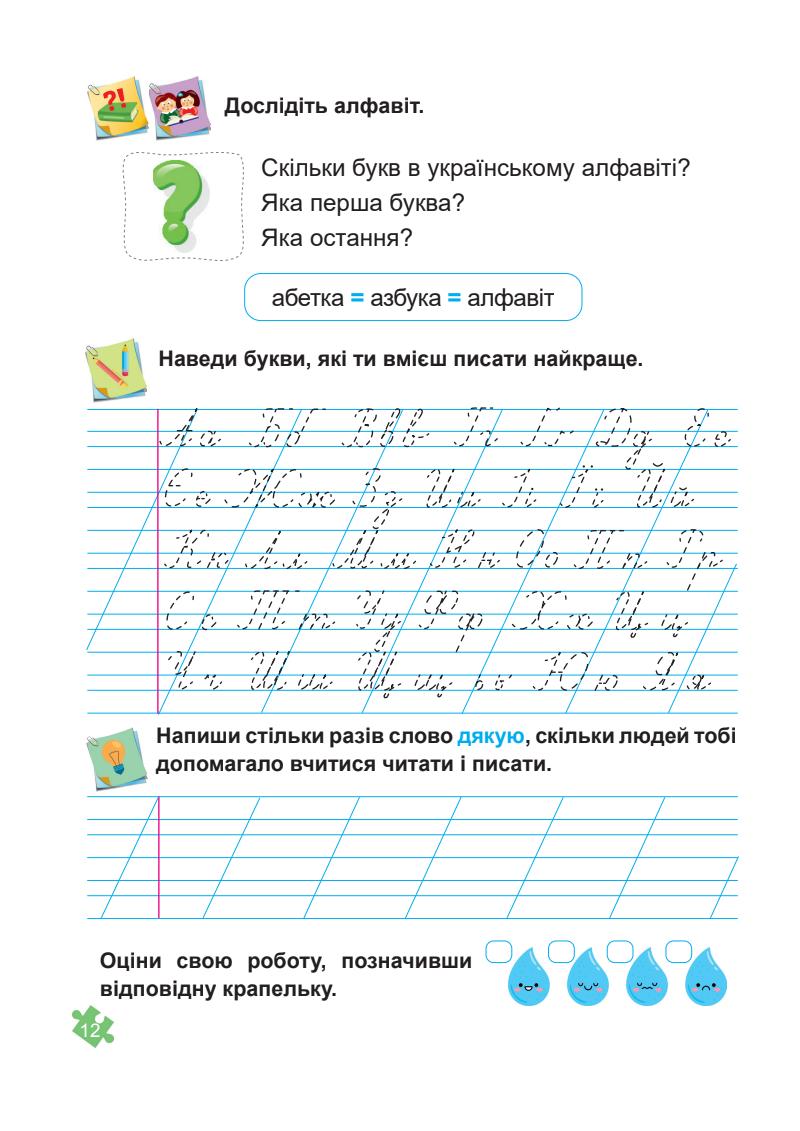 Дослідіть алфавіт.
Скільки букв в українському алфавіті?
Яка перша буква?
Яка остання?
абетка = азбука = алфавіт
Наведи букви, які ти вмієш писати найкраще.
Аа Бб Вв Гг Ґґ Дд Ее
Єє Жж Зз Ии Іі Її Йй
Кк Лл Мм Нн Оо Пп Рр
Сс Тт Уу Фф Хх Цц
Чч Шш Щщ ь Юю Яя
Напиши стільки разів слово дякую, скільки людей тобі
допомагало вчитися читати і писати.
Оціни свою роботу, позначивши
відповідну крапельку.
12